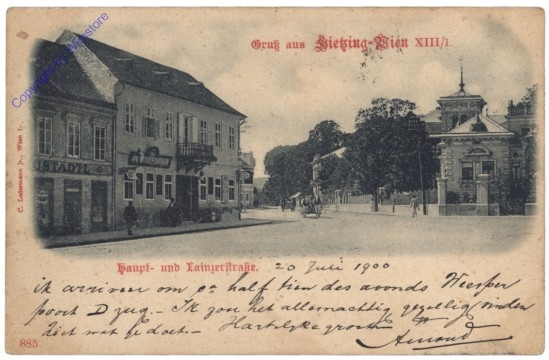 Gruß aus Hietzing-Wien XIII/1.
Copyright by Weinstore
C. Ledermann jr., Wien I.
USTADTL
Haupt- und Lainzerstraße.
20 Juli 1900
ik arriveer om ca half tien des avonds Weesper
poort D zug. - Ik zou het allemachtig gezellig vinden
ziet wat je doet. - Hartelijke groeten
Arnoud
885